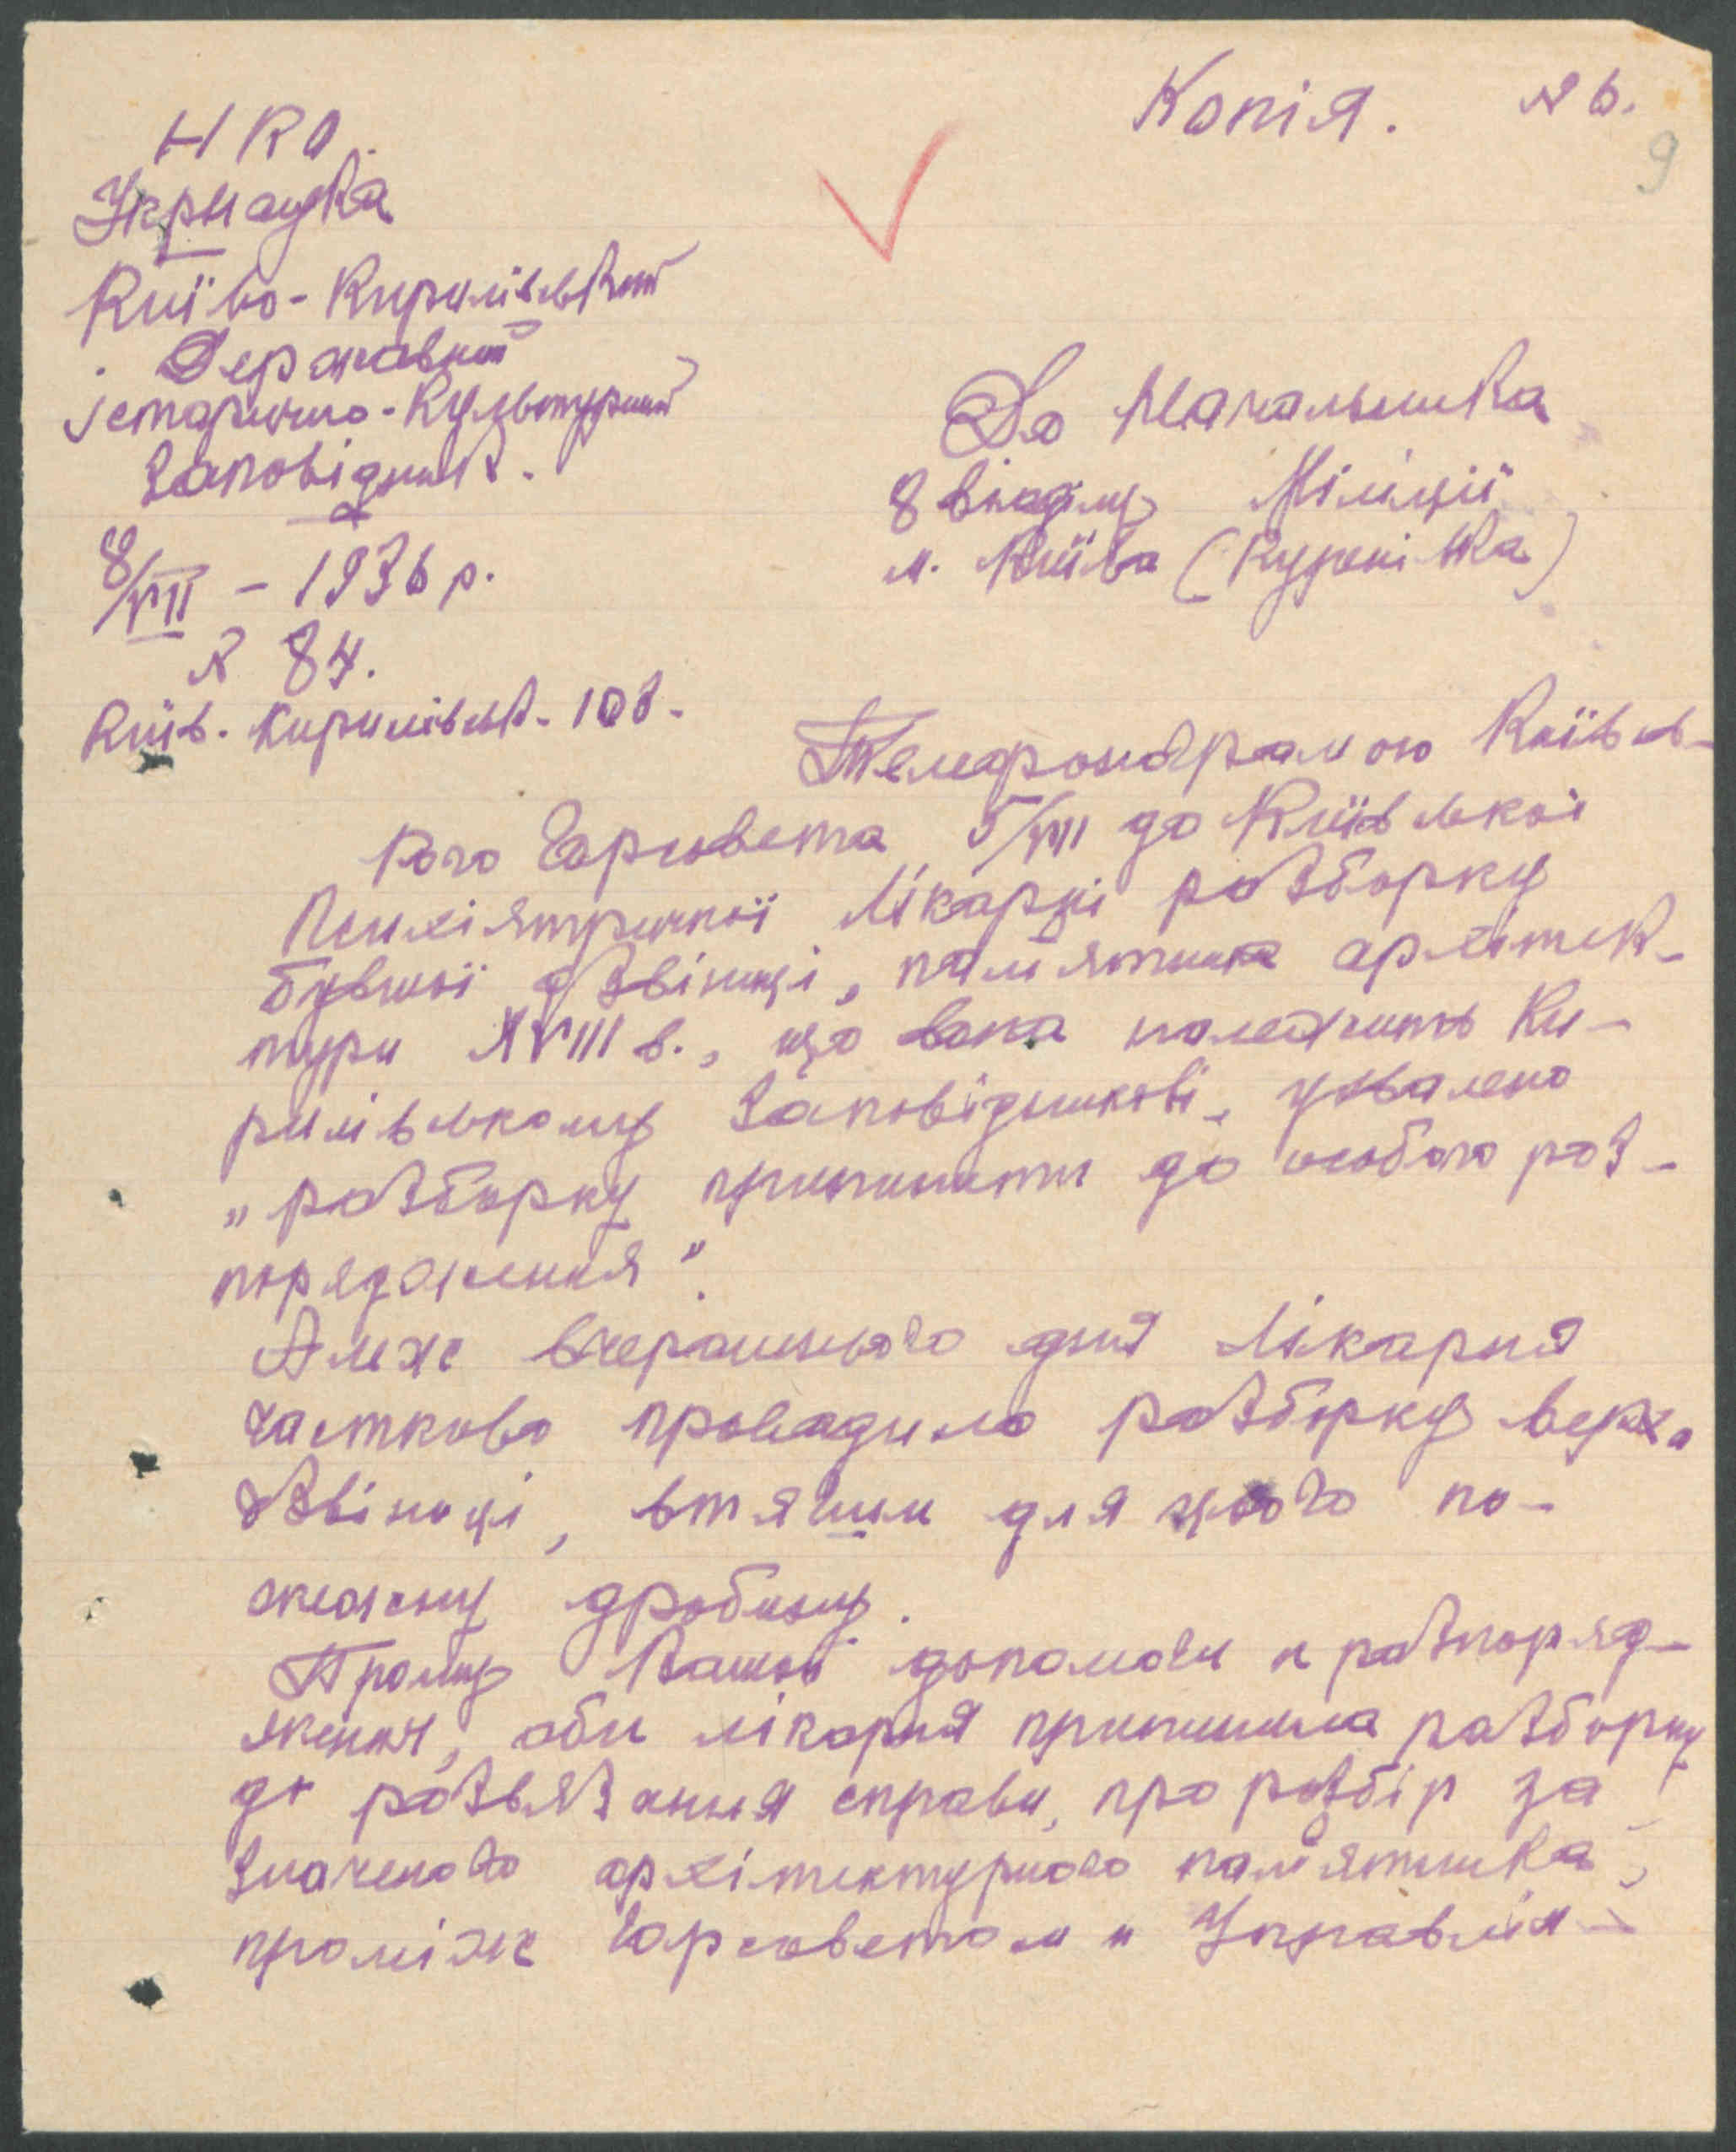 Копія. № 6.
9
НКО.
Укрнаука
Київо-Кирилівський
Державний
Історично-Культурний
Заповідник.
8/VII - 1936 р.
№ 84.
Київ. Кирилівськ. 103.
До Начальника
8 відділу Міліції
м. Київа (Куренівка)
Телефонограмою Київсь-
кого Горсовета 5/VII до Київської
Психіятричної Лікарні розборку
бувшої дзвіниці, пам'ятника архітек-
тури XVIII в., що вона належить Ки-
рилівському Заповідникові, ухвалено
„розборку припинити до особого роз-
порядження".
Алеж вчерашнього дня Лікарня
частково проводило розборку верха
дзвіниці, втягши для цього по-
жежну дробину.
Прошу Вашої допомоги и розпоряд-
ження, аби лікарня припинила розборку
до розв'язання справи, про розбір за
значеного архітектурного пам'ятника,
проміж Горсоветом и Управлін-